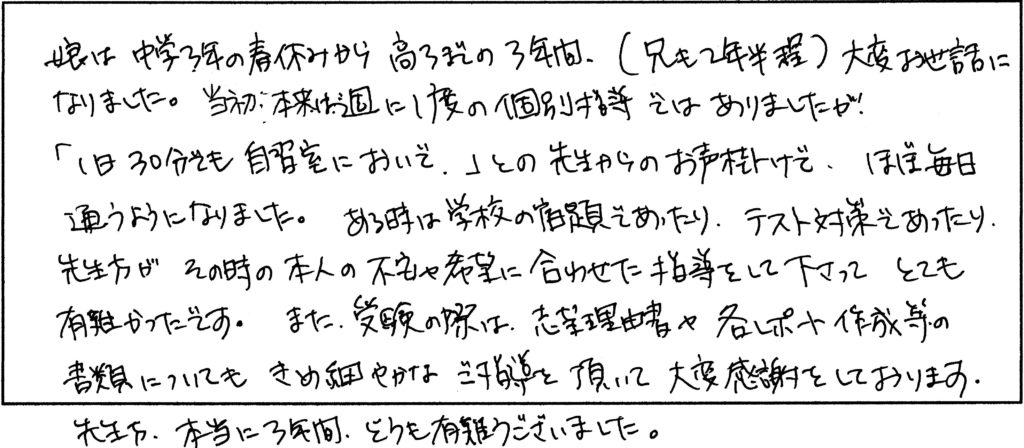 娘は中学3年の春休みから高3までの3年間、(兄も2年半程)大変お世話に
なりました。当初、本来は週に1度の個別指導ではありましたが、
「1日30分でも自習室においで。」との先生からのお声掛けで、ほぼ毎日
通うようになりました。ある時は学校の宿題であったり、テスト対策であったり、
先生方がその時の本人の不安や希望に合わせた指導をして下さってとても
有難かったです。また、受験の際は、志望理由書や各レポート作成等の
書類についてもきめ細やかなご指導を頂いて大変感謝をしております。
先生方、本当に3年間、どうも有難うございました。